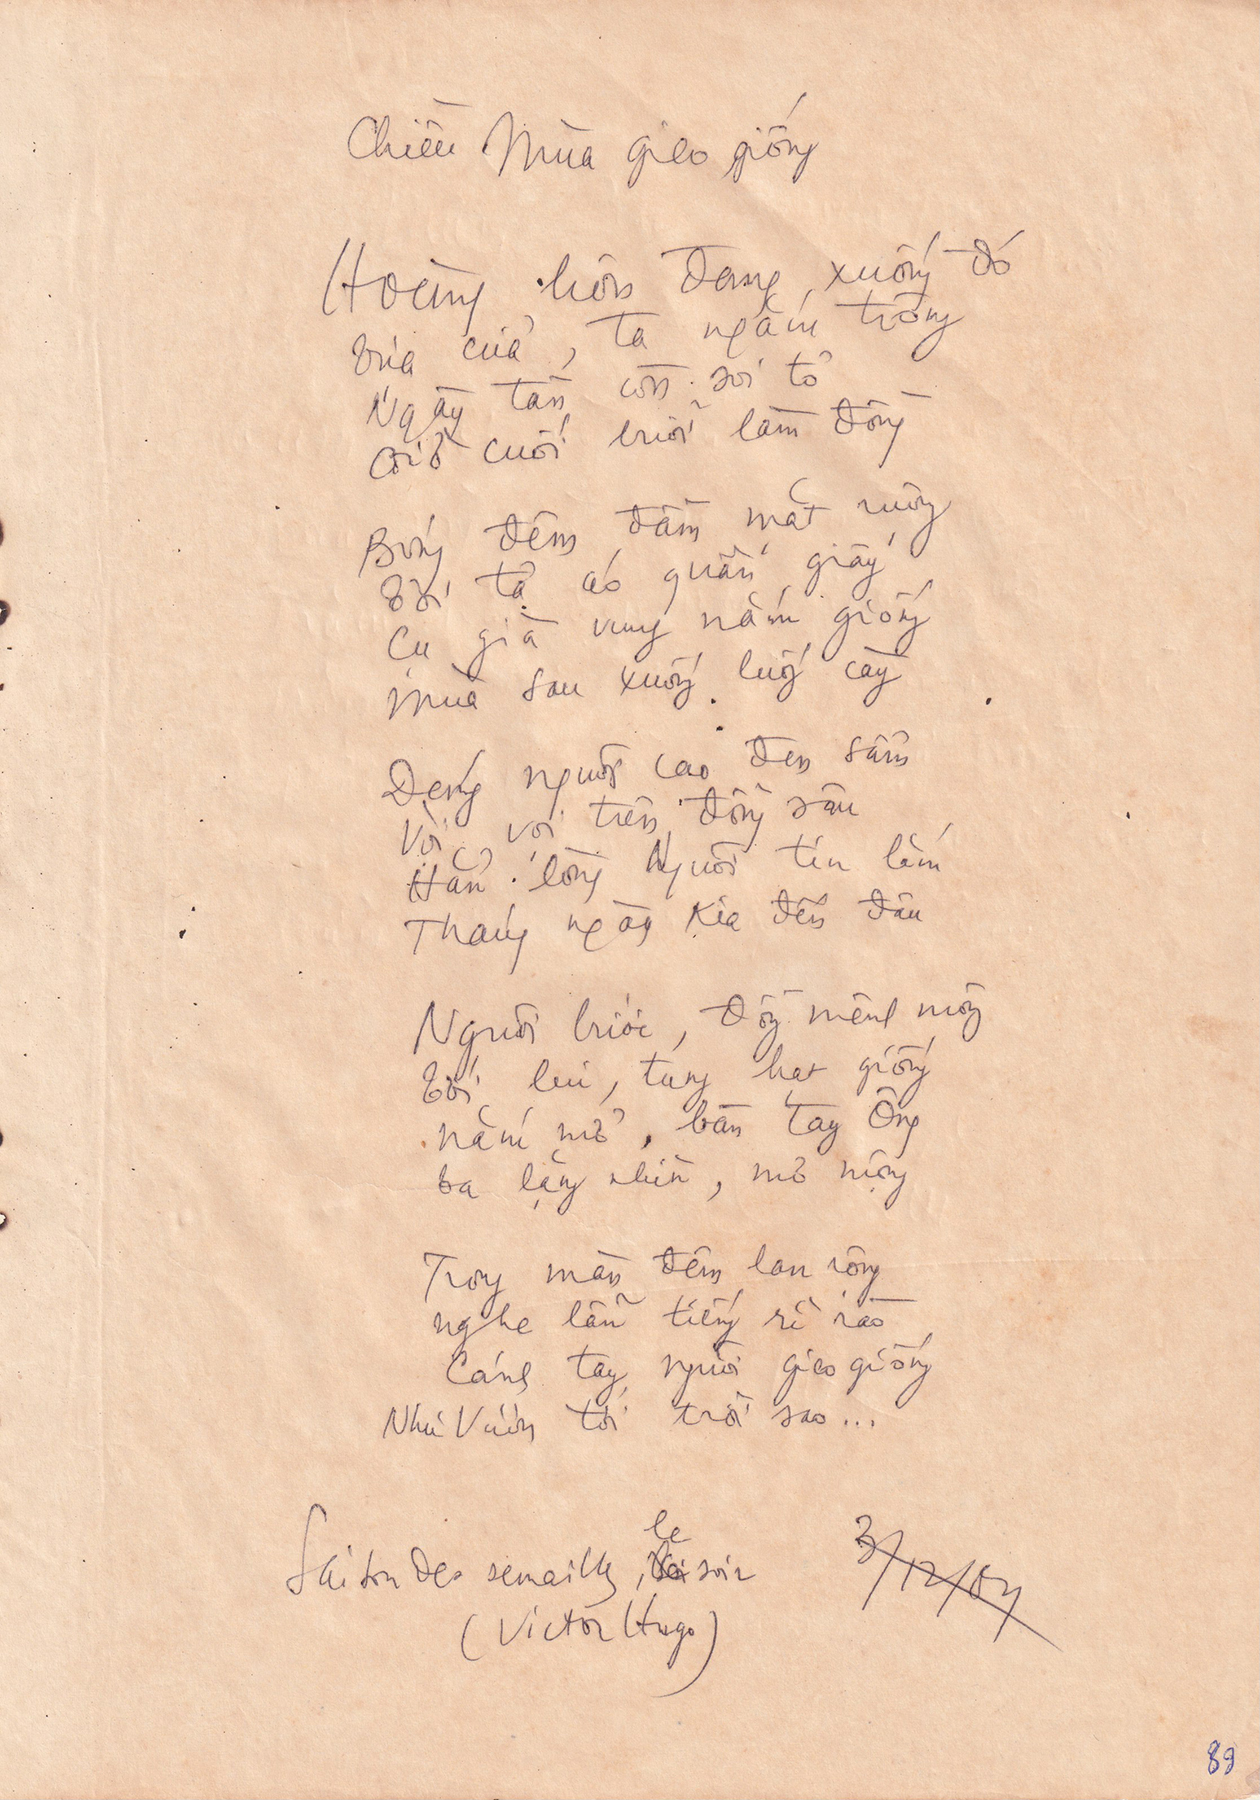 Chiều Mùa gieo giống
Hoàng hôn đang xuống đó
Vừa cửa, ta ngắm trông
Ngày tàn còn soi tỏ
cuối buổi làm đồng
Bóng đêm đầm mặt ruộng
Bối tả áo quần giấy
Cụ già vung nắm giống
Mùa sau xuống luống cày
Dáng người cao đen sẫm
Vòi vọi trên đồng sâu
Hẳn lòng Người tin lắm
Tháng ngày kia đến đâu
Người bước, đồng mênh mông
Tới, lui, tung hạt giống
nắm mở, bàn tay Ông
ta lặng nhìn, mơ mộng
Trong màn đêm lan rộng
nghe lẫn tiếng rì rào
Cánh tay người gieo giống
Như Vươn tới trời sao...
Saison des semailles, le soir
(Victor Hugo)
3/12/84
89